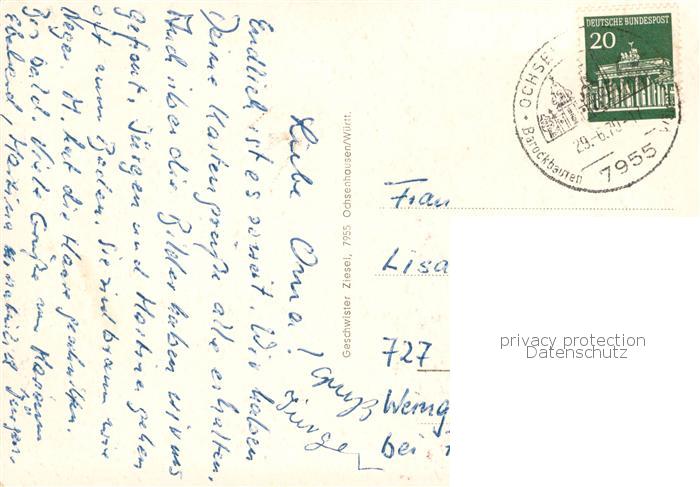 Liebe Oma!
Endlich ist es soweit. Wir haben
Deine Kartengrüße alle erhalten.
Auch über die Bilder haben wir uns
gefreut. Jürgen und Martina gehen
oft zum Baden. Sie sind braun wie
Neger. M. hat die Haare geschnitten.
Bis bald. Viele Grüße von Marianne
Eberhard, Martina u. Jürgen.
Gruß
Jürgen
Geschwister Ziesel, 7955 Ochsenhausen/Württ.
DEUTSCHE BUNDESPOST
20
OCHSE
29.-6.70
7955
Barockbauten
Frau
Lisa
727
Weing
bei
privacy protection
Datenschutz